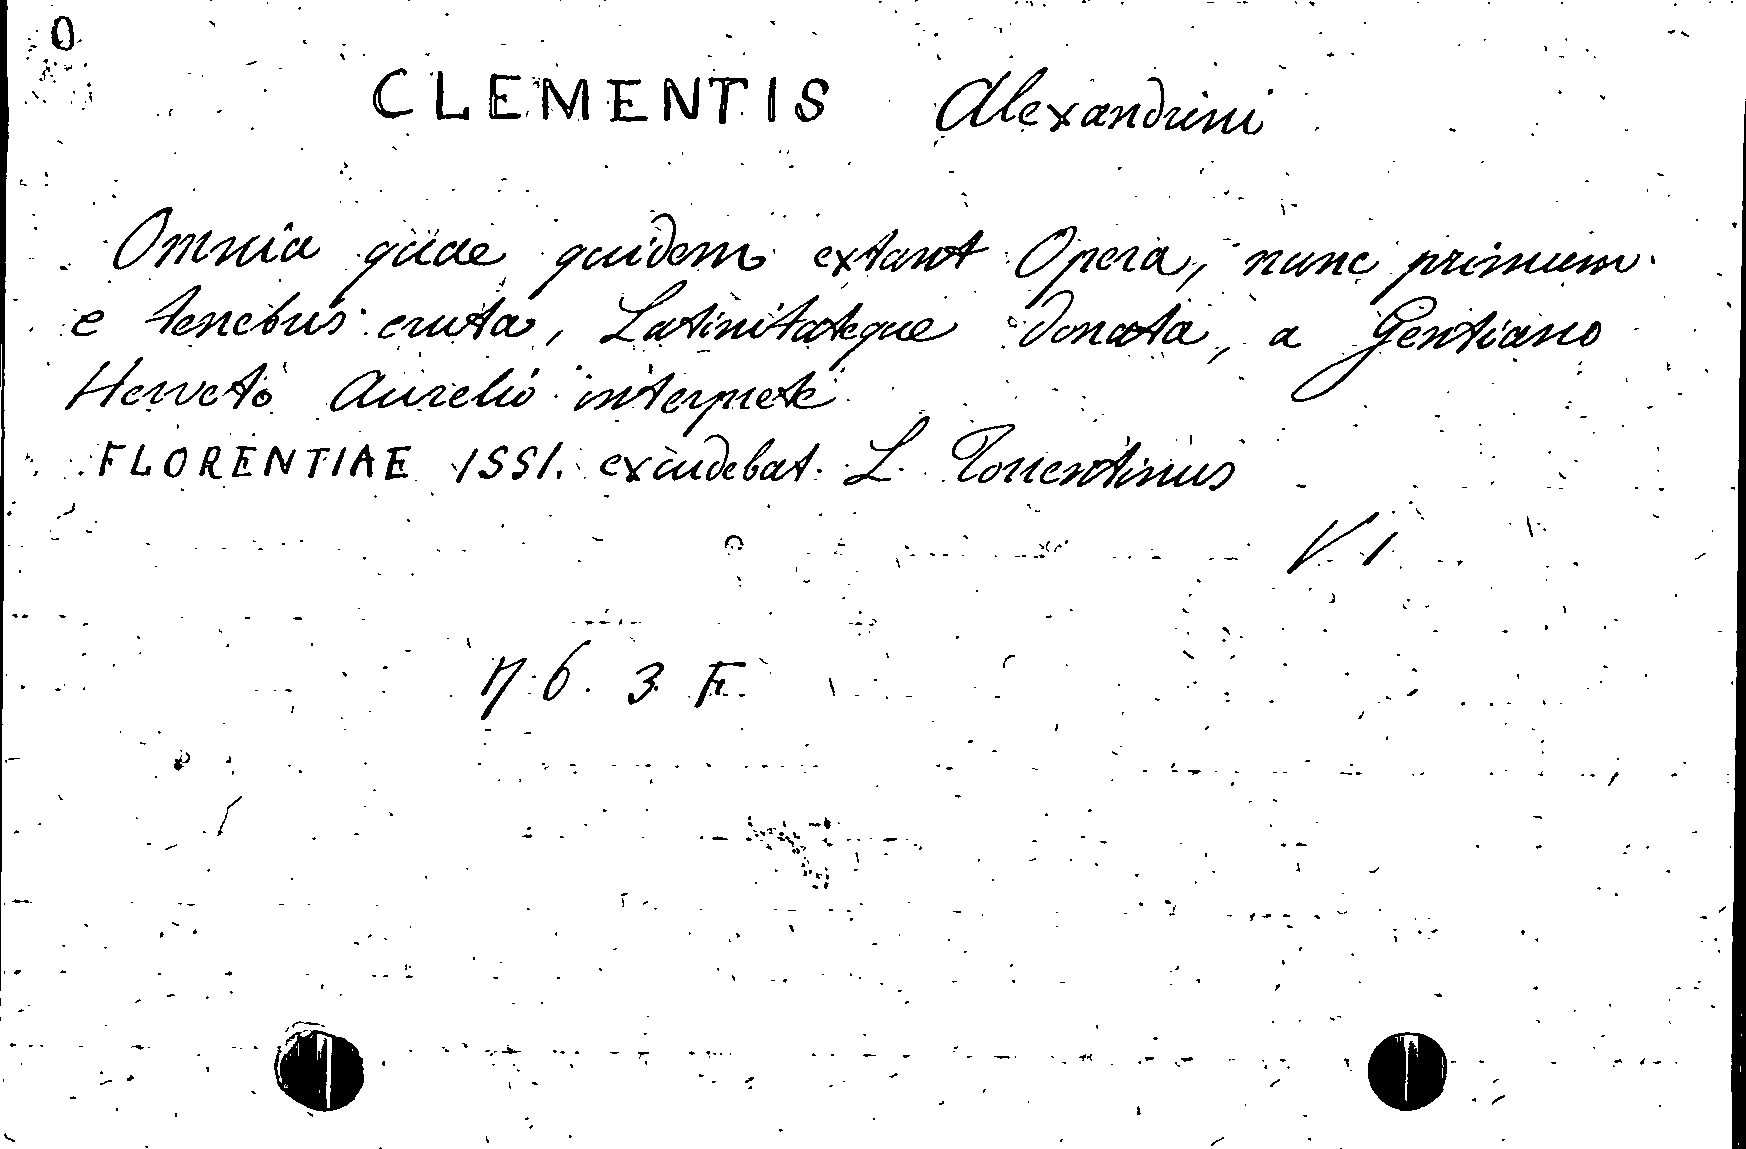 0
CLEMENTIS Alexandrini
Omnia quae quidem extant Opera, nunc primum
e tenebris eruta, Latinitateque donata, a Gentiano
Herveto Aurelio interprete
FLORENTIAE 1551. excudebat L. Torrentinus
V. 1
η. 6. 3. F.